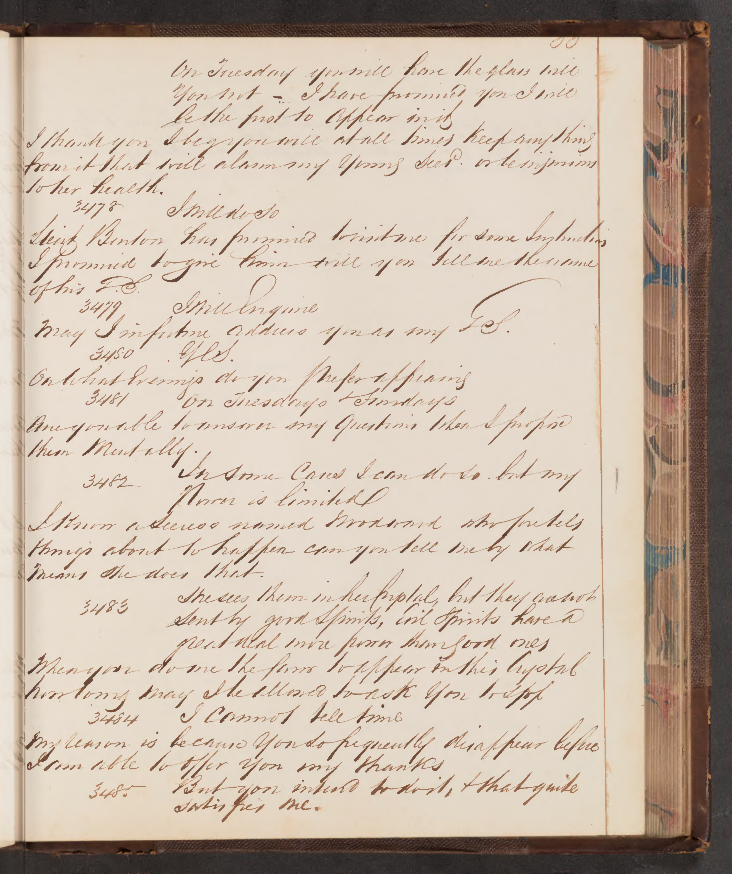 On Tuesday you will have the glass will
You not - I have promised you I will
be the first to appear in it
I thank you I beg you will at all times keep anything
from it that will alarm my Young Seer. or be injurious
to her health.
3478 I will do so
Lieut Burton has promised to visit me for some Instructions
I promised to give him will you tell me the name
of his G.S.
3479 I will Enquire
May I in future address you as my G.S.
3480 Yes.
On what Evenings do you Prefer appearing
3481 On Tuesdays & Sundays
Are you able to answer my Questions when I propose
them Mentally.
3482 In some Cases I can do so. but my
Power is limited
I Know a Seeress named Woodward who foretels
things about to happen can you tell me by what
means she does that.
3483 She sees them in her Crystal, but they are not
sent by good Spirits, Evil Spirits have a
great deal more power than good ones
When you do me the favor to appear in this Crystal
how long may I be allowed to ask You to stop
3484 I cannot tell time
My reason is because You so frequently disappear before
I am able to offer You my thanks
3485 But you intend to do it, & that quite
satisfies me.